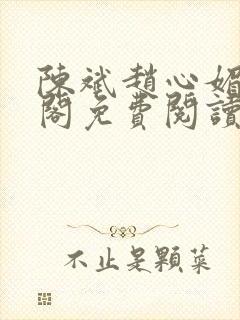 陳斌趙心媚
閣免費閱讀
不止是顆菜